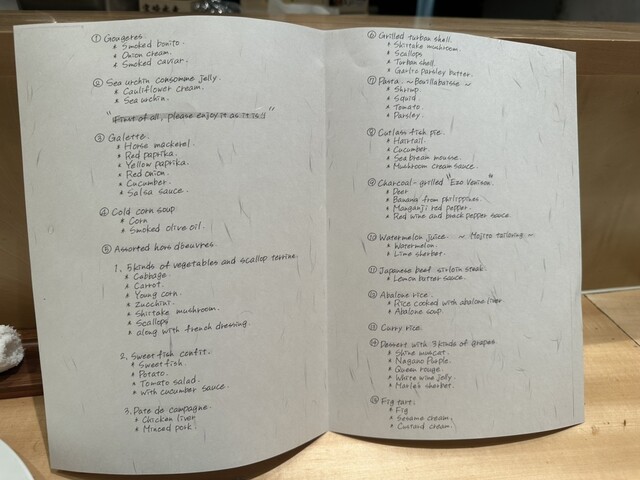 ① Gougeres.
* Smoked bonito.
* Onion cream.
* Smoked caviar.
② Sea urchin consomme jelly.
* Cauliflower cream.
* Sea uchin.
"First of all, please enjoy it as it is!!"
③ Galette.
* Horse mackerel.
* Red paprika.
* Yellow paprika.
* Red onion.
* Cucumber.
* Salsa sauce.
④ Cold corn soup
* Corn
* Smoked olive oil.
⑤ Assorted hors d'oeuvres
1. 5 kinds of vegetables and scallop terrine.
* Cabbage.
* Carrot.
* Young corn.
* Zucchini.
* Shiitake mushroom.
* Scallops
* along with french dressing
2. Sweet fish confit.
* Sweet fish.
* Potato.
* Tomato salad.
* with cucumber sauce.
3. Pate de campagne.
* Chicken liver
* Minced pork
⑥ Grilled turban shell.
* Shiitake mushroom.
* Scallops
* Turban shell.
* Garlic parsley butter.
⑦ Pasta. ~ Bouillabaisse ~
* Shrimp
* Squid
* Tomato.
* Parsley.
⑧ Cutlass fish pie.
* Hairtail.
* Cucumber.
* Sea bream mousse.
* Mushroom cream sauce.
⑨ Charcoal-grilled "Ezo Venison."
* Deer
* Banana from philippines.
* Manganji red pepper.
* Red wine and black pepper sauce.
⑩ Watermelon juice. ~ Mojito tailoring ~
* Watermelon.
* Lime sherbet.
⑪ Japanese beef sirloin steak.
* Lemon butter sauce.
⑫ Abalone rice.
* Rice cooked with abalone liver
* Abalone soup
⑬ Curry rice.
⑭ Dessert with 3 kinds of grapes.
* Shine muscat.
* Nagano Purple.
* Queen rouge.
* White wine jelly
* sherbet.
⑮ Fig tart.
* Fig
* Sesame cream.
* Custard cream.